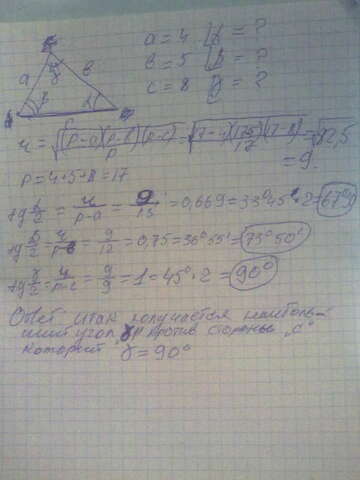 a = 4 ∠α = ?
b = 5 ∠β = ?
c = 8 ∠γ = ?
a γ b
α
r = √((p-a)(p-b)(p-c)/p) = √((17-4)(17-5)(17-8)/17) = √82,5
= 9.
p = 4+5+8 = 17
tg α/2 = r/p-a = 9/13 = 0,669 = 33°45' · 2 = 67°
tg β/2 = r/p-b = 9/12 = 0,75 = 36°55' = 73°50'
tg γ/2 = r/p-c = 9/9 = 1 = 45° · 2 = 90°
Ответ итак получается наиболь-
ший угол, γ против стороны "c"
который γ = 90°